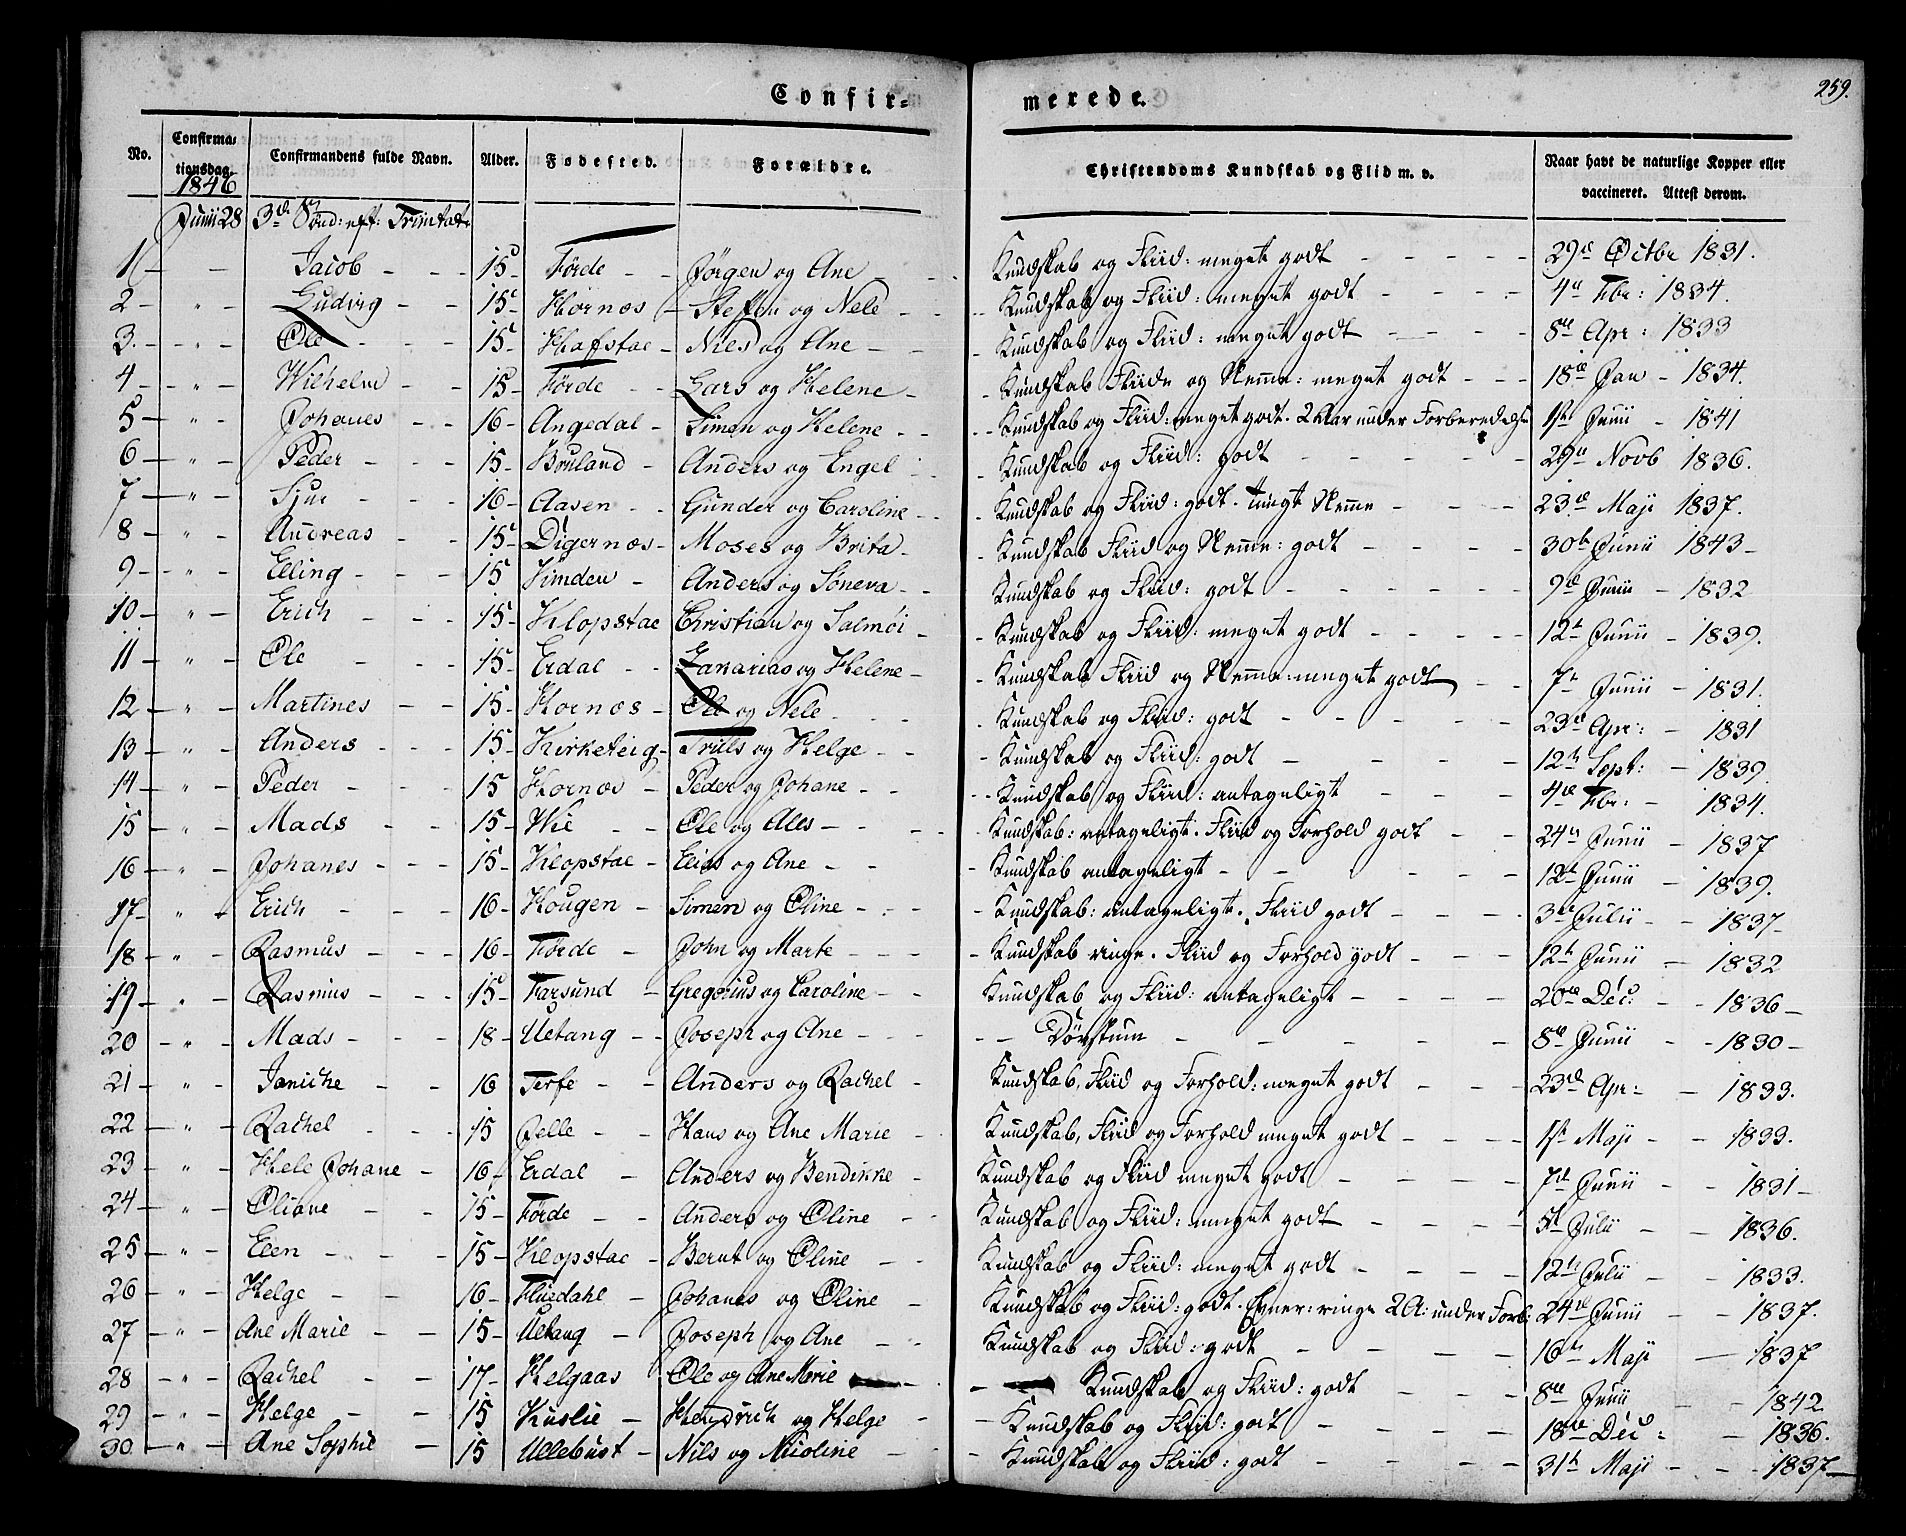 259.
Confir= merede.
No. Confirma= tionsdag. Confirmandens fulde Navn. Alder. Fødested. Forældre. Christendoms Kundskab og Flid m. v. Naar havt de naturlige Kopper eller vaccineret. Attest derom.
1846
Junii 28 3d. Sønd: eft: Trinitat:
1 — — Jacob - - - 15 - Förde - - Jörgen og Ane - Kundskab og Fliid: meget godt - - - - - 29d Octbr 1831.
2 - " - Ludvig - - 15 - Hornæs - Steffen og Nele - - Kundskab og Fliid: meget godt - - - - 4d Fbr: 1834.
3. - " - Ole - - - 15 - Hafstae - Niels og Ane - - Kundskab og Fliid: meget godt - - - - 8de Apr: 1833
4 - " - Wilhelm - - 15 - Förde - - Lars og Helene - Kundskab Fliide og Nemme: meget godt - - - 18de Jan - 1834.
5 - " - Johanes - - 16 - Angedal - Simen og Helene - - Kundskab og Fliid: meget godt. 2 Aar under Forberedelse 1st Junii - 1841
6 - " - Peder - - - 15 - Bruland - Anders og Engel - Kundskab og Fliid: godt - - - - - 29d Novb 1836.
7 - " - Sjur - - - 16 - Aasen - - Gunder og Caroline - - Kundskab og Fliid: godt. tungt Nemme - - - 23d Maji 1837.
8 - " - Andreas - - 15 - Digernæs - Moses og Brita - - Kundskab Fliid og Nemme: godt - - - - 30t Junii 1843 -
9 - " - Elling - - - 15 Vimden - Anders og Söneva - - Kundskab og Fliid: godt - - - - - 9d Junii - 1832
10 - " - Erich - - - 15 - Klopstae Christian og Salmöi - Kundskab og Fliid: meget godt - - - - 12t Junii - 1839.
11 - " - Ole - - - 15 - Erdal - - Zakarias og Helene - Kundskab Fliid og Nemme: meget godt - - 7t Junii - 1831.
12 - " - Martines - - 15 - Hornæs - Ole og Nele - - - Kundskab og Fliid: godt - - - - - 23d Apr: - 1831
13 - " - Anders - - - 15 - Kirketeig - Trills og Helge - - Kundskab og Fliid: godt - - - - 12t Sept: - 1839.
14 - " - Peder - - - 15 Hornæs - Peder og Johane - - Kundskab og Fliid: antageligt - - - 4d Fbr: - 1834.
15 - " - Mads - - 15 - Hie - - Ole og Alls - - - Kundskab: antageligt. Fliid og Forhold godt - - 24d Junii - 1837
16 - " - Johanes - - - 15 - Klopstae - Elias og Ane - - Kundskab antageligt - - - - - 12t Junii - 1839.
17 - " - Erich - - - 16 - Hougen - Simen og Oline - - Kundskab: antageligt. Fliid godt - - - 3de Julii - - 1837 -
18 - " - Rasmus - - - 16 - Förde - John og Marte - - - Kundskab ringe. Fliid og Forhold godt - - - 12t Junii - 1832
19 - " - Rasmus - - - 15 - Farsund - Gregorius og Caroline - - Kundskab og Fliid: antageligt - - - - 20de Dec: - - 1836 -
20 - " - Mads - - - 18 - Uetang - - Joseph og Ane - - - - Dövstum - - - - - 8de Junii - - 1830 -
21 - " - Janiche - - 16 Terfe - - Anders og Rachel - Kundskab, Fliid og Forhold: meget godt - - - 23d Apr: - - 1833.
22 - " - Rachel - - - 15 Jelle - - Hans og Ane Marie - Kundskab, Fliid og Forhold meget godt - - - - 1st Maji - - 1833.
23 - " - Hele Johane - 16 - Erdal - Anders og Bendikke - Kundskab og Fliid meget godt - - - - 7d Junii - - 1831 -
24 - " - Oliane - - 15 - Förde - - Anders og Oline - - Kundskab og Fliid: meget godt - - - - 5t Julii - - 1836.
25 - " - Elen - - - 15 - Klopstae - Bernt og Oline - - Kundskab og Fliid: meget godt - - - - 12te Julii - - 1833.
26 - " - Helge - - 16 - Fluedahl - Johanes og Oline - Kundskab og Fliid: godt. Evner: ringe 2 A: under Forb: 24d Junii - - 1837.
27 - " - Ane Marie - - 15 - Uetang - Joseph og Ane - Kundskab og Fliid: godt - - - - 16t Maji - 1837
28 - " - Rachel - - 17 - Helgaas Ole og Ane Marie - - Kundskab og Fliid: godt - - - 8de Junii - - 1842
29 - " - Helge - - 15 Huslie - Hendrich og Helge - - Kundskab og Fliid: godt - - - - 18de Dec: - 1836.
30 - " - Ane Sophie - 15 Ullebust - Nils og Nicoline - Kundskab og Fliid: godt - - - - 31t Maji - - - 1837 -